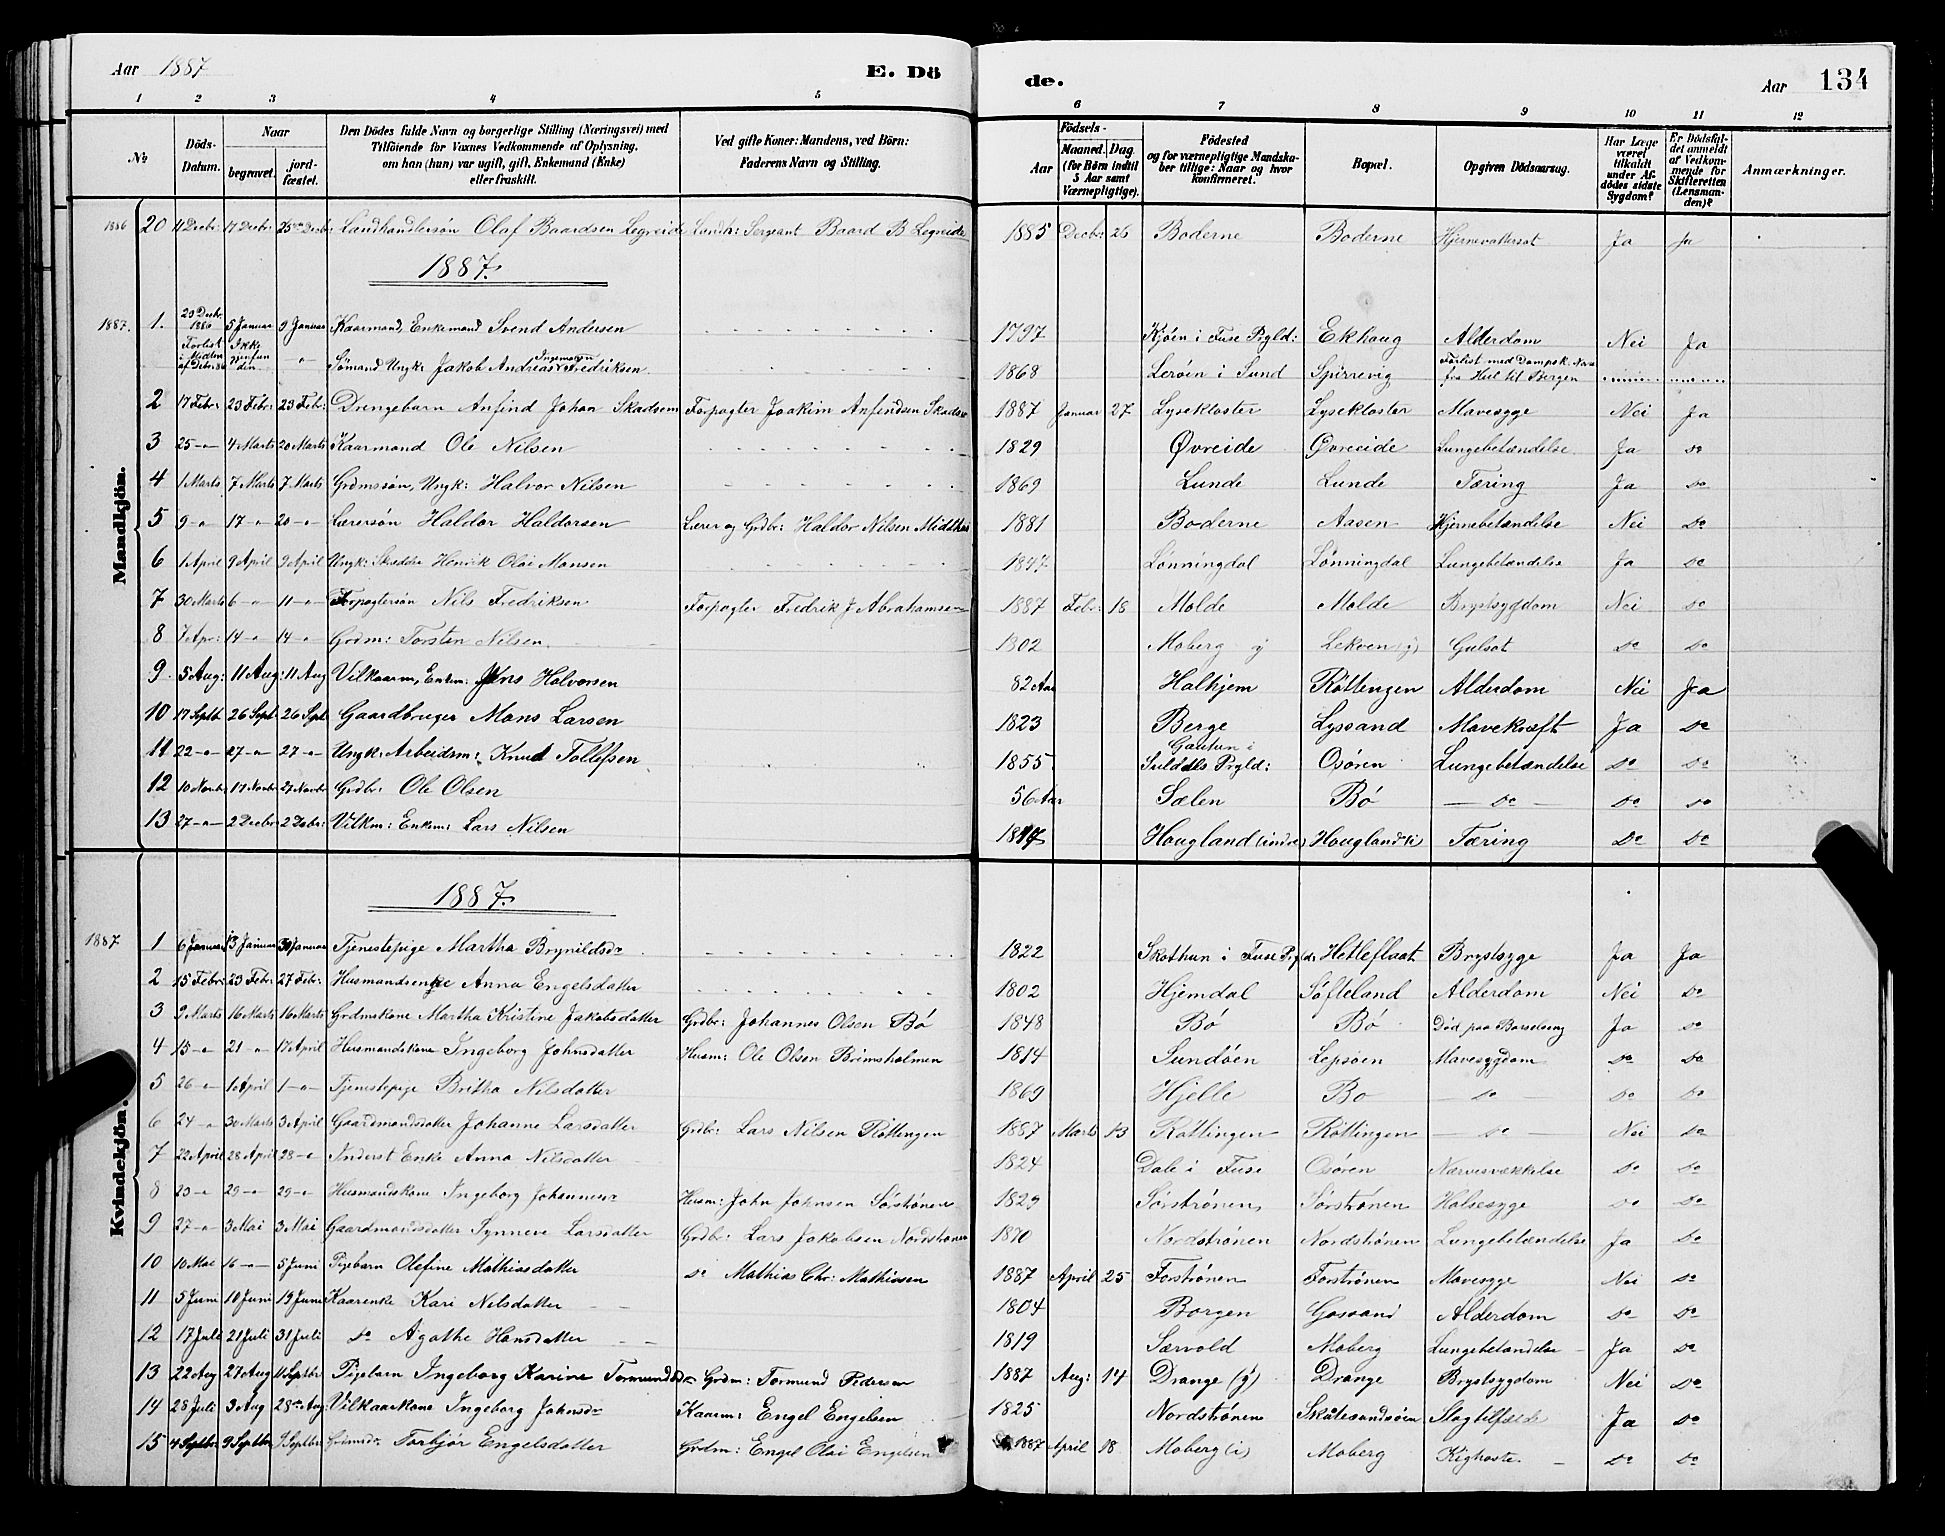 Aar 1887 E. Dö de. Aar 134
1 2 3 4 5 6 7 8 9 10 11 12
№ Döds-Datum. Naar begravet. jord-fæstet. Den Dödes fulde Navn og borgerlige Stilling (Næringsvei) med Tilföiende for Voxnes Vedkommende af Oplysning, om han (hun) var ugift, gift, Enkemand (Enke) eller fraskilt. Ved gifte Koner: Mandens, ved Börn: Faderens Navn og Stilling. Födsels- Aar Maaned. Dag. (for Börn indtil 5 Aar samt Værnepligtige). Födested og for værnepligtige Mandskaber tillige: Naar og hvor konfirmeret. Bopæl. Opgiven Dödsaarsag. Har Læge været tilkaldt under Afdödes sidste Sygdom? Er Dödsfaldet anmeldt af Vedkommende for Skifteretten (Lensmanden)? Anmærkninger.
1886 20 11 Decbr: 17 Decbr: 25 Decbr: Landhandlersøn Olaf Baardsen Legreide Landh: Sergeant Baard B. Legreide 1885 Decbr: 26 Boderne Boderne Hjernevattersot Ja Ja
1887.
Mandkjön.
1887. 1. 29 Decbr. 1886 5 Januar 9 Januar Kaarmand, Enkemand Svend Andersen 1797 Kjøen i Fuse Prgld: Ekhaug Alderdom Nei Ja
Forlist i Midten af Decbr 86 Ikke gjenfunden " Sømand Ungk: Jakob Andreas Ingemann Fredriksen 1868 Lerøin i Sund Spirrevig Forlist med Dampsk. Nora fra Hul til Bergen
2 17 Febr: 23 Febr: 23 Febr: Drengebarn Anfind Johan Skadsem Forpagter Joakim Anfindsen Skadsem 1887 Januar 27 Lysekloster Lysekloster Mavesyge Nei Ja
3 25 -"- 4 Marts 20 Marts Kaarmand Ole Nilsen 1829 Øvreide Øvreeide Lungebetændelse Ja do
4 1 Marts 7 Marts 7 Marts Grdmssøn, Ungk: Halvor Nilsen 1869 Lunde Lunde Tæring Ja do
5 9 -"- 17 -"- 20 -"- Lærersøn Haldor Haldorsen Lærer og Grdbr: Haldor Nilsen Midthus 1881 Boderne Aasen Hjernebetændelse Nei Do
6 1 April 9 April 9 April Ungk: Skrædder Henrik Olai Monsen 1847 Lønningdal Lønningdal Lungebetændelse Ja do
7 30 Marts 6 -"- 11 -"- Forpagtersøn Nils Fredriksen Forpagter Fredrik J Abrahamsen 1887 Febr: 18 Molde Molde Brystsygdom Nei do
8 7 Apr: 14 -"- 14 -"- Grdm: Torsten Nilsen 1802 Moberg y Lekven (y) Gulsot do do
9. 5 Aug: 11 Aug: 11 Aug Vilkaarm, Enkem: Jens Halvorsen 82 Aar Halhjem Røttingen Alderdom Nei Ja
10 17 Septb. 26 Sept. 26 Sept. Gaardbruger Mons Larsen 1823 Berge Lyssand Mavekræft Ja do
11 22 -"- 27 -"- 27 -"- Ungk: Arbeidsm: Knud Tollefsen 1855 Gautun i Suldals Prgld: Osøren Lungebetændelse do do
12 10 Novbr 17 Novbr 27 Novbr Grdbr: Ole Olsen 56 Aar Sælen Bø — do — do do
13 27 -"- 2 Decbr 2 Decbr: Vilkm: Enkem: Lars Nilsen Hougland (indre) Hougland (i) Tæring Do Do
1887.
Kvindekjön.
1887 1 6 Januar 13 Januar 30 Januar Tjenestepige Martha Brynildsdr 1822 Skothun i Fuse Prgld. Hetleflaat Brystsyge Ja Ja
2 15 Febr: 23 Febr: 27 Febr: Husmandsenke Anna Engelsdatter 1802 Hjemdal Søfteland Alderdom Nei do
3 9 Marts 16 Marts 16 Marts Grdmskone Martha Kristine Jakobsdatter Grdbr: Johannes Olsen Bø 1848 Bø Bø Død paa Barselseng Ja do
4 15 -"- 21 -"- 17 April Husmandskone Ingeborg Johnsdatter Husm: Ole Olsen Brimsholmen 1814 Sundøen Lepsøen Mavesygdom do do
5 26 -"- 1 April 1 -"- Tjenestepige Britha Nilsdatter 1869 Hjelle Bø — do — do do
6 24 -"- 30 Marts 3 April Gaardmandsdatter Johanne Larsdatter Grdbr: Lars Nilsen Røttingen 1887 Marts 13 Røttingen Røttingen — do — Nei do
7 22 April 28 April 28 -"- Inderst Enke Anna Nilsdatter 1824 Dale i Fuse Osøren Nervesvækkelse do do
8 23 -"- 29 -"- 29 -"- Husmandskone Ingeborg Johannesdr Husm: John Johnsen Sørstrønen 1829 Sørstrønen Sørstrønen Halsesyge do do
9 27 -"- 3 Mai 3 Mai Gaardmandsdatter Synneve Larsdatter Grdbr: Lars Jakobsen Nordstrønen 1870 Nordstrønen Nordstrønen Lungebetændelse Ja do
10 10 Mai 16 -"- 5 Juni Pigebarn Olefine Mathiasdatter do Mathias Chr: Mathiasen 1887 April 25 Forstrønen Forstrønen Mavesyge Nei do
11 5 Juni 10 Juni 19 Juni Kaarenke Kari Nilsdatter 1804 Borgen Gaasand Alderdom do do
12 17 Juli 21 Juli 31 Juli do Agathe Hansdatter 1819 Særvold Moberg Lungebetændelse Ja do
13 22 Aug 27 Aug 11 Septbr Pigebarn Ingeborg Karine Tormundsdr Grdm: Tormund Pedersen 1887 Aug: 14 Drange (y) Drange Brystsygdom Nei do
14 28 Juli 3 Aug 28 Aug: Vilkaarkone Ingeborg Johnsdr Kaarm: Engel Engelsen 1825 Nordstrønen Skåtesandsøen Slagtilfælde Ja do
15 4 Septbr: 9 Septbr 9 Septbr Grdmsdr Torbjør Engelsdatter Grdm: Engel Olai Engelsen 1887 April 18 Moberg (i) Moberg Kighoste do do